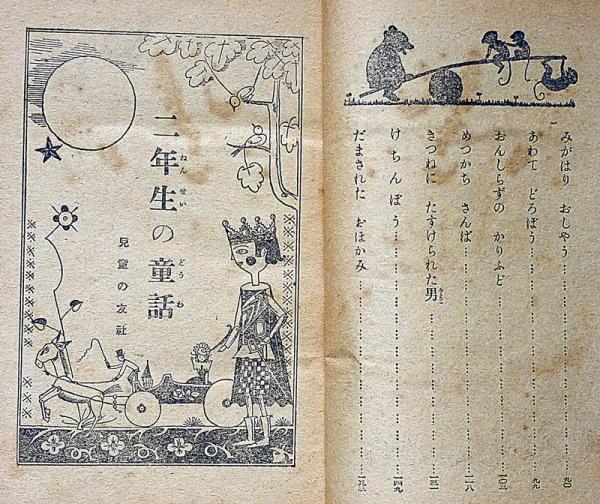 みがはり おしやう……九〇
あわて どろぼう……九九
おんしらずの かりふど……一〇三
めつかち さんば……一一八
きつねに たすけられた男……一三一
けちんぼう……一四九
だまされた おほかみ
二年生の童話
ねん せい どう わ
兒童の友社